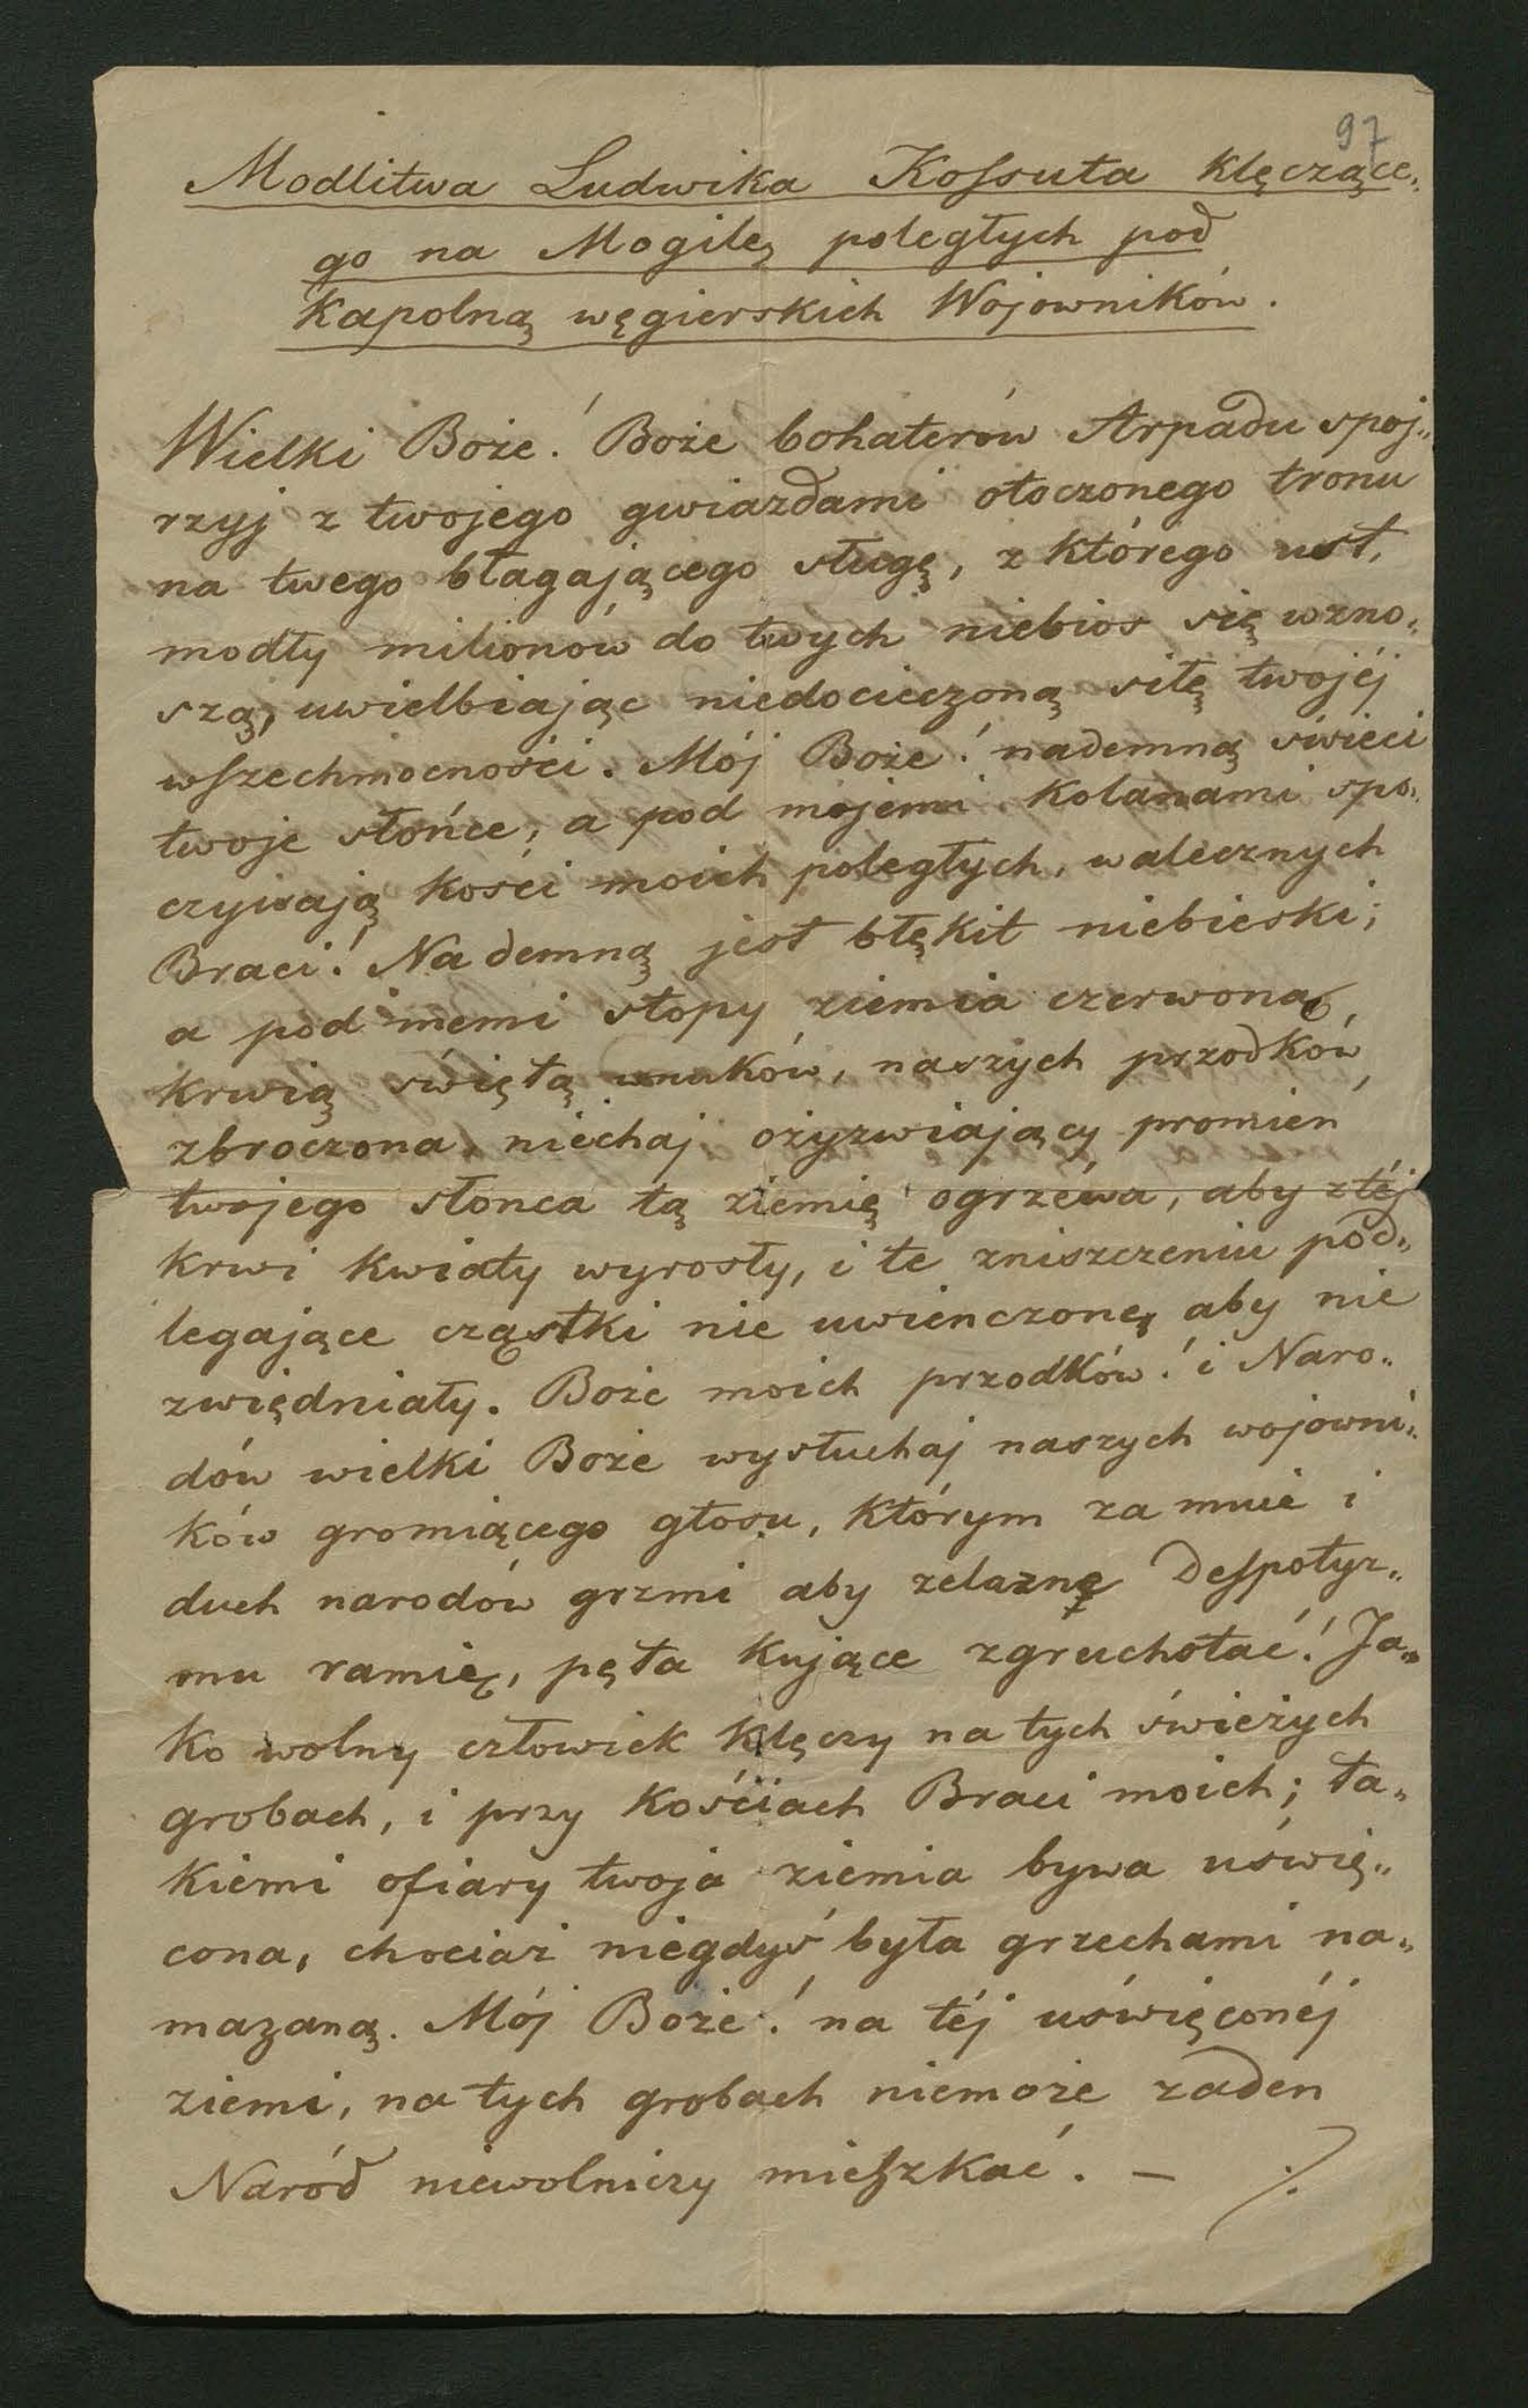 97
Modlitwa Ludwika Kossuta klęczące„
go na Mogilę poległych pod
Kapolną węgierskich Wojowników.
Wielki Boże! Boże bohaterów Arpadu spoj„
rzyj z twojego gwiazdami otoczonego tronu
na twego błagającego sługę, z którego ust,
modły milionów do twych niebios się wzno„
szą, uwielbiając niedocieczoną siłę twojéj
wszechmocności. Mój Boże! nademną świeci
twoje słońce, a pod mojemi kolanami spo„
czywają kości moich poległych, walecznych
Braci! Nademną jest błękit niebieski;
a pod memi stopy ziemia czerwona,
krwią świętą wnuków, naszych przodków
zbroczona, niechaj ożyzwiający promień
twojego słonca tą ziemię ogrzewa, aby z téj
krwi kwiaty wyrosły, i te zniszczeniu pod„
legające cząstki nie uwienczone, aby nie
zwiędniały. Boże moich przodków! i Naro„
dów wielki Boże wysłuchaj naszych wojowni„
ków gromiącego głosu, którym za mnie i
duch narodów grzmi aby zelazne Despotyz„
mu ramię, pęta kujące zgruchotać! Ja„
ko wolny człowiek klęczy na tych świeżych
grobach, i przy kościach Braci moich; ta„
kiemi ofiary twoja ziemia bywa uświę„
cona, chociaż niegdyś była grzechami na„
mazaną. Mój Boże! na téj uświęconéj
ziemi, na tych grobach niemoże zaden
Naród niewolniczy mieszkać. — ./.